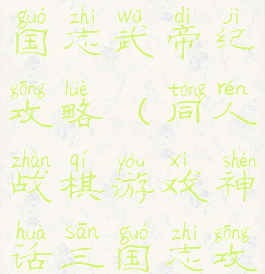 guó zhì wǔ dì jì
国志武帝纪
gōng lüè tóng rén
攻略（同人
zhàn qí yóu xì shén
战棋游戏神
huà sān guó zhì gōng
话三国志攻